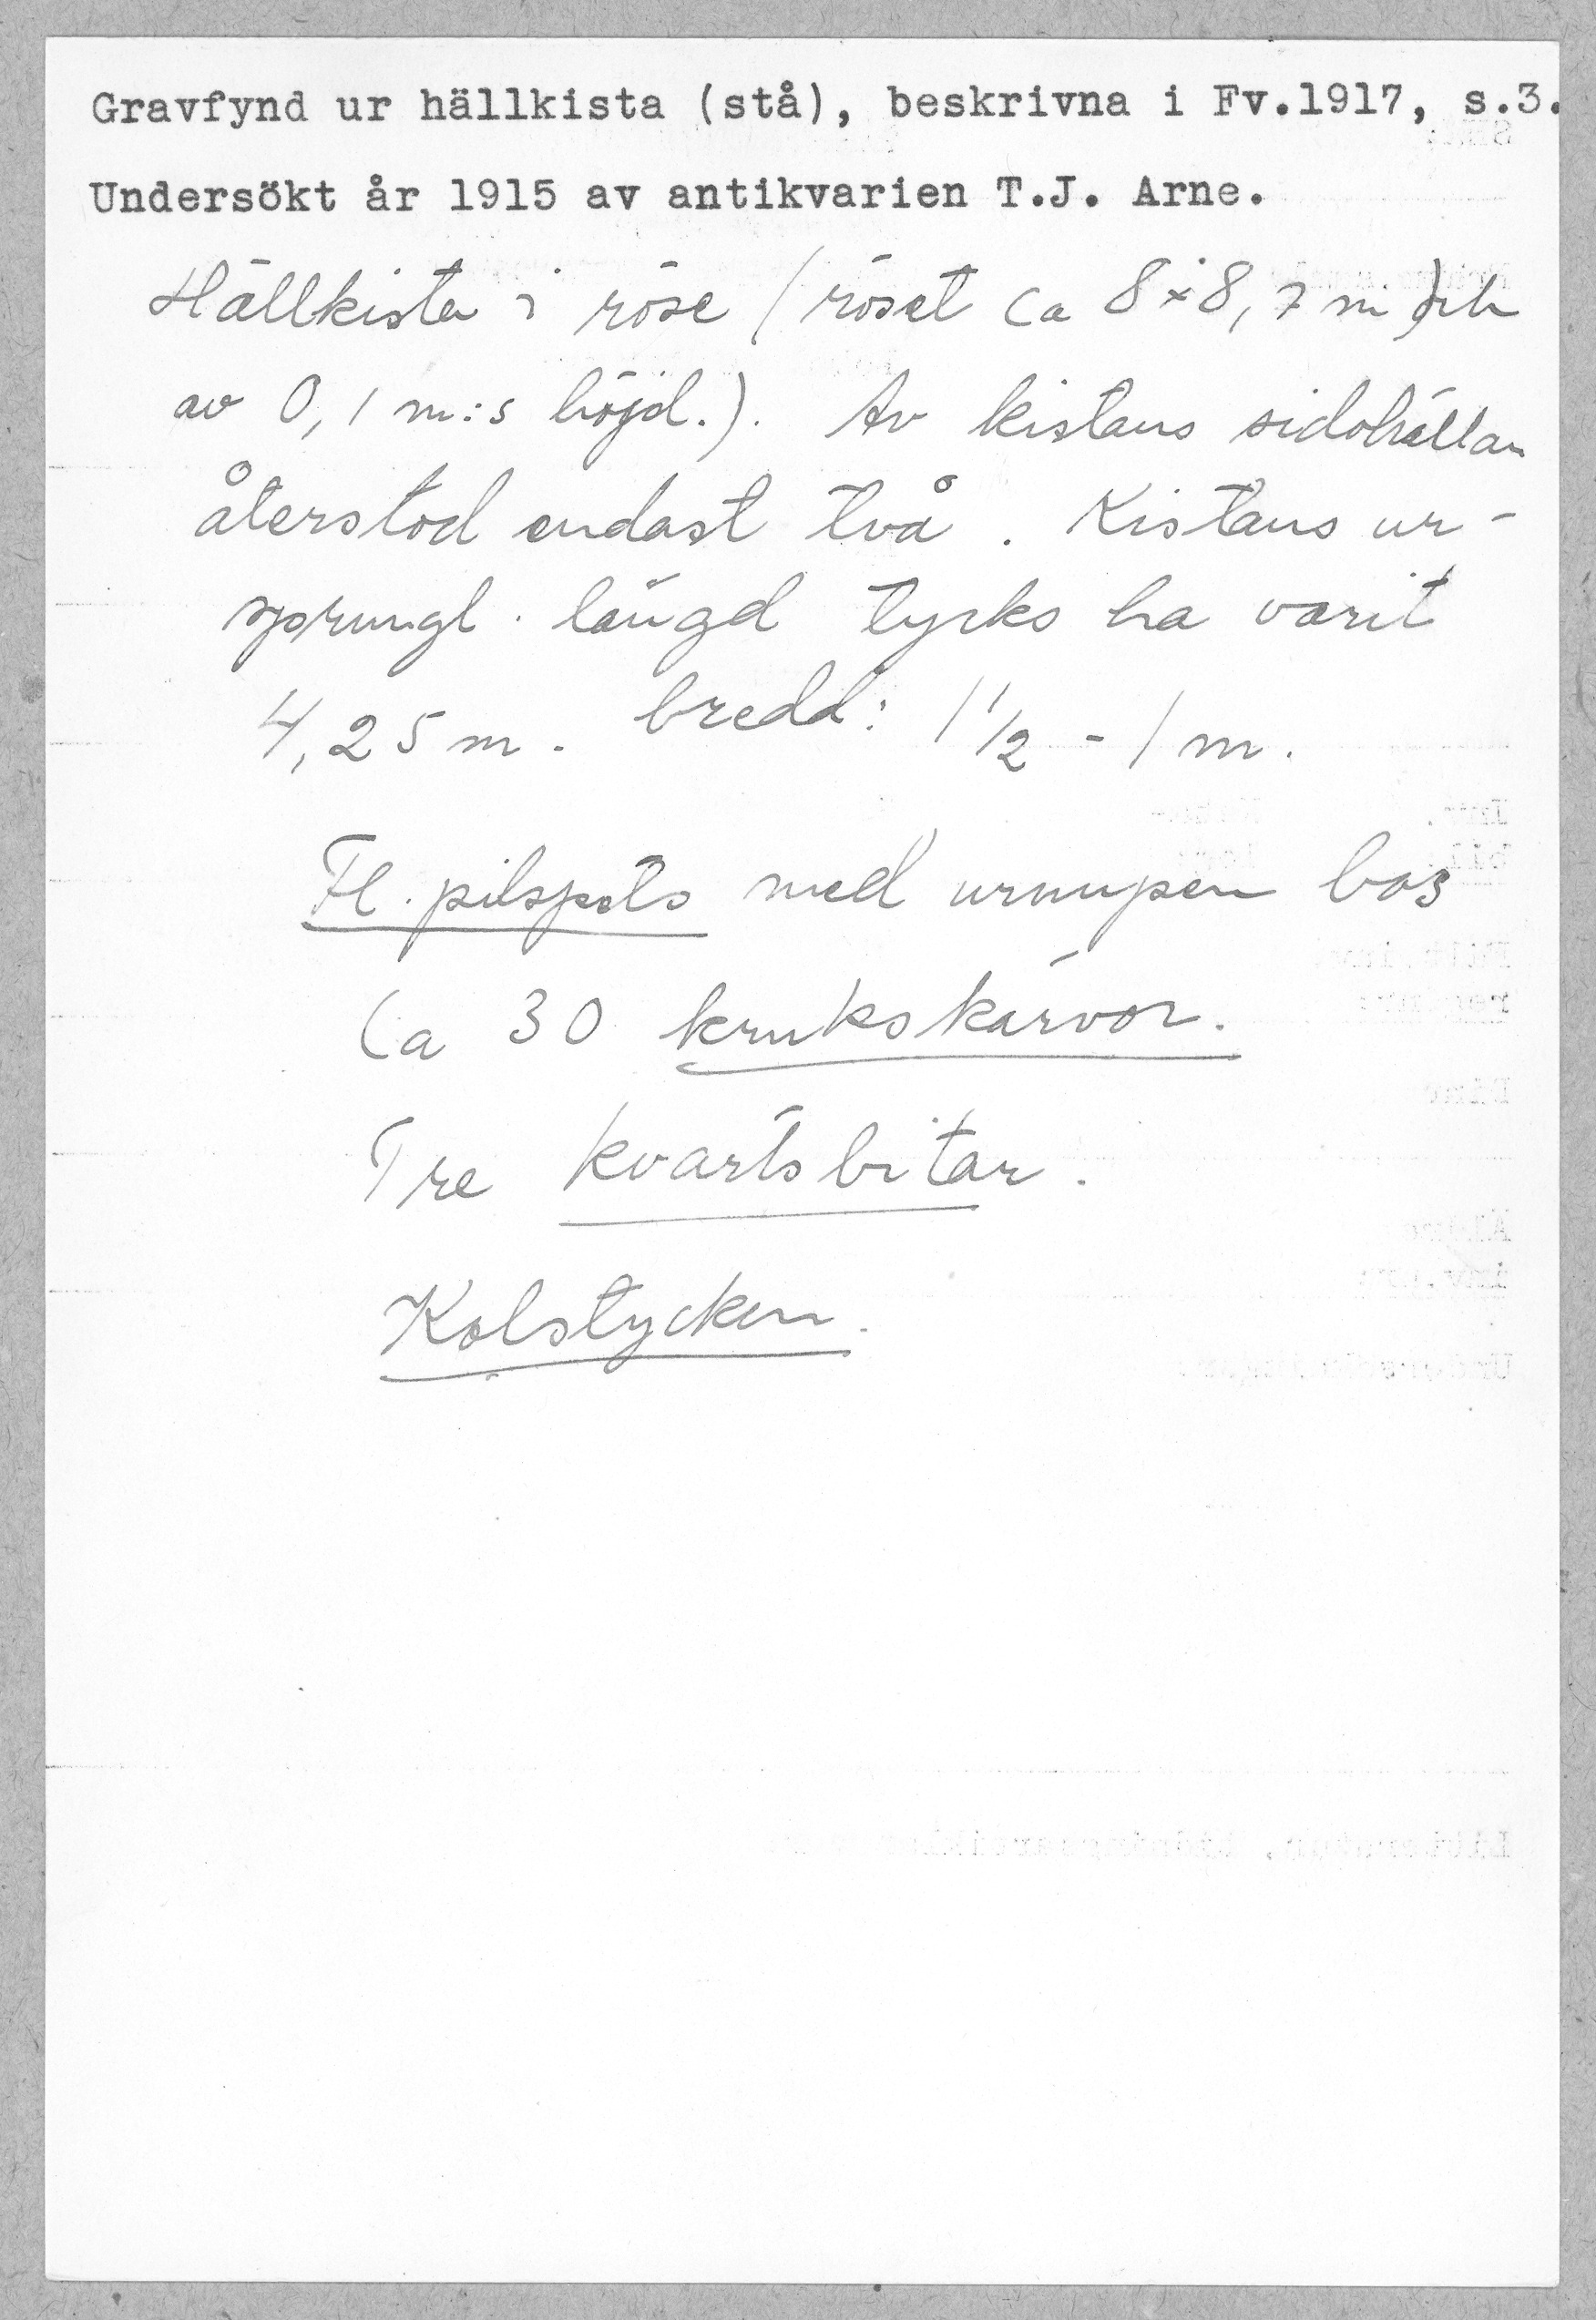 Gravfynd ur hällkista (stå), beskrivna i Fv.1917, s.3.
Undersökt år 1915 av antikvarien T.J. Arne.
Hällkista i röse (röset ca 8×8,7 m) och
av 0,1 m:s höjd.). Av kistans sidohällar
återstod endast två. Kistans ur-
sprungl. längd tycks ha varit
4,25 m. bredd: 1 1/2 - 1 m.
Fl. pilspets med urnupen bas
Ca 30 krukskärvor.
Tre kvartsbitar.
Kolstycken.